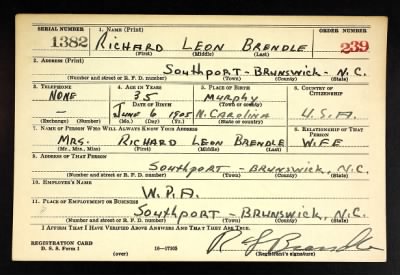 SERIAL NUMBER 1. NAME (Print) ORDER NUMBER
1382 RICHARD LEON BRENDLE 239
(First) (Middle) (Last)
2. ADDRESS (Print)
SOUTHPORT - BRUNSWICK - N.C.
(Number and street or R. F. D. number) (Town) (County) (State)
3. TELEPHONE 4. AGE IN YEARS 5. PLACE OF BIRTH 6. COUNTRY OF CITIZENSHIP
NONE 35 MURPHY
DATE OF BIRTH (Town or county)
JUNE 6 1905 N. CAROLINA U.S.A.
(Exchange) (Number) (Mo.) (Day) (Yr.) (State or country)
7. NAME OF PERSON WHO WILL ALWAYS KNOW YOUR ADDRESS 8. RELATIONSHIP OF THAT PERSON
MRS. RICHARD LEON BRENDLE WIFE
(Mr., Mrs., Miss) (First) (Middle) (Last)
9. ADDRESS OF THAT PERSON
SOUTHPORT - BRUNSWICK, N.C.
(Number and street or R. F. D. number) (Town) (County) (State)
10. EMPLOYER'S NAME
W.P.A.
11. PLACE OF EMPLOYMENT OR BUSINESS
SOUTHPORT - BRUNSWICK, N.C.
(Number and street or R. F. D. number) (Town) (County) (State)
I AFFIRM THAT I HAVE VERIFIED ABOVE ANSWERS AND THAT THEY ARE TRUE.
REGISTRATION CARD
D. S. S. Form 1 (over) 16—17105 R L Brendle
(Registrant's signature)